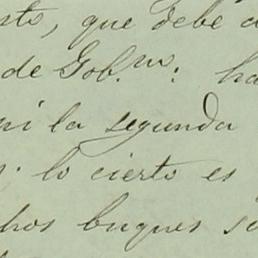 esto, que debe d
de Gob.no: ha
ni la segunda
s. lo cierto es
chos buques so